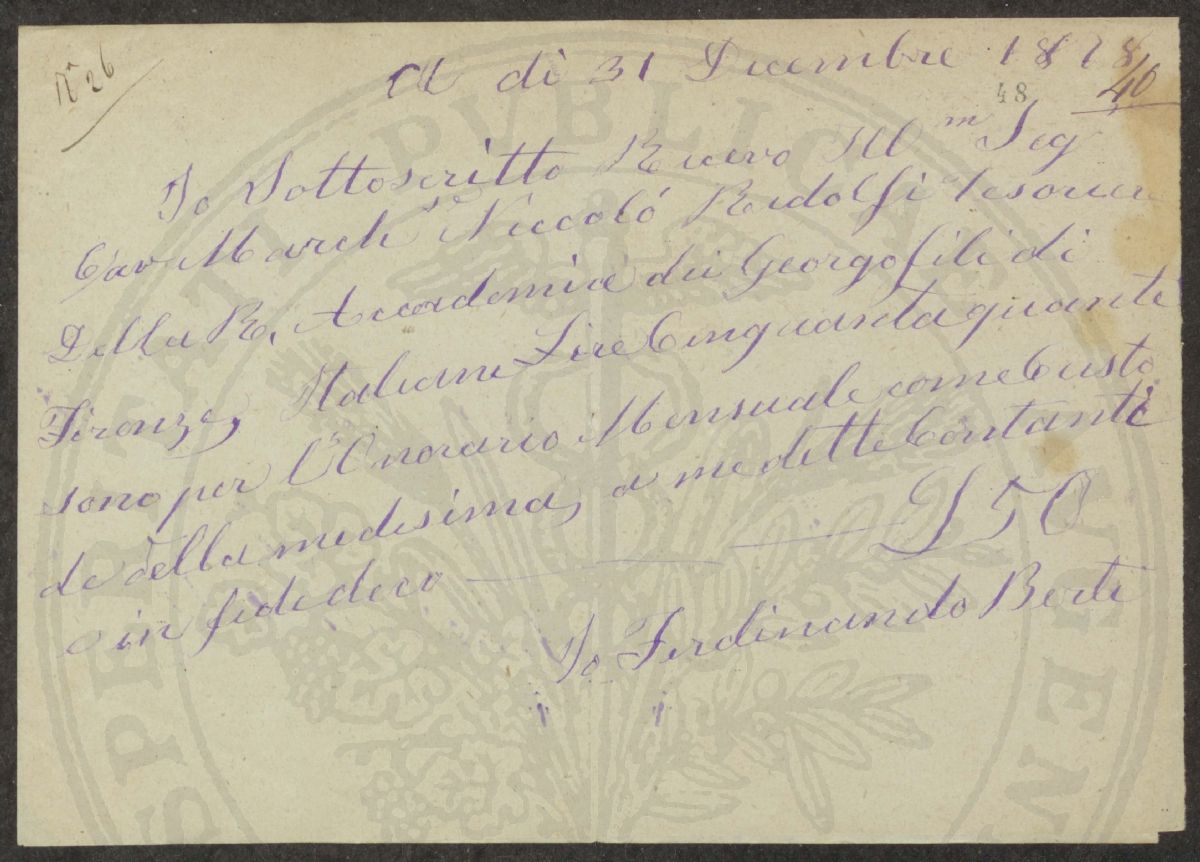 N° 26
A dì 31 Decembre 1878
48
40
Io Sottoscritto Ricevo Ill<sup>m</sup> Seg
Cav March<sup>se</sup> Niccoló Ridolfi Tesorier
Della R. Accademia dei Georgofili di
Firenze, Italiane Lire Cinquanta quante
sono per l'Onorario Mensuale come Custo
de della medesima, a me dette Contanti
in fede dico L 50
Io Ferdinando Berti
PROSPERITATI PUBLICAE AUGENDAE